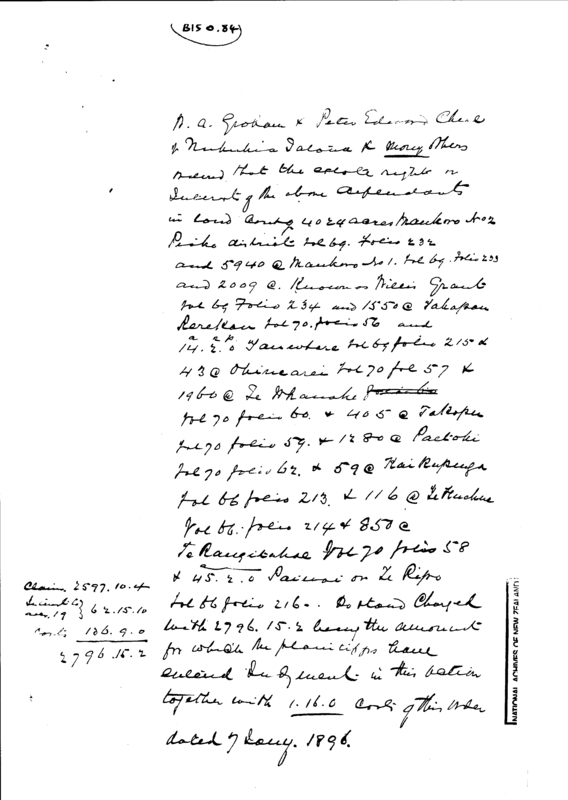 B15 0.84
W. A. Graham & Peter Edward Cheal
v Nukuhia Taloua & many Others
that the estate rights or
Interest of the above defendants
in land Contg 4024 acres Maukoro No 2
Piako district Vol 69. Folio 232
and 5940 @ Maukoro No 1. Vol 69. Folio 233
and 2009 @. Known as Willis Grant
Vol 69 Folio 234 and 1550 @ Vahapan
Rerekau Vol 70. folio 56 and
14. 2. 0 Vol 69 folio 215 &
43 @ Ohinearei Vol 70 fol 57 &
1960 @ Te Whanake
Vol 70 folio 60. & 405 @ Takapu
Vol 70 folio 59. & 1280 @ Paetoki
Vol 70 folio 62. & 59 @ Kai Kupenga
Vol 66 folio 213. & 116 @
Vol 66. folio 214 & 850 @
Te Rangitahae Vol 70 folio 58
& 45. 2. 0 Paiwai or Te Ripo
Vol 66 folio 216. Do stand Charged
with 2796. 15. 2 being the amount
for which the plaintiffs have
entered Judgment in this action
together with 1. 16. 0 Costs of this Order
dated 7 Jany. 1896.
Claim. 2597. 10. 4
62. 15. 10
Costs 136. 9. 0
2796. 15. 2
NATIONAL ARCHIVES OF NEW ZEALAND